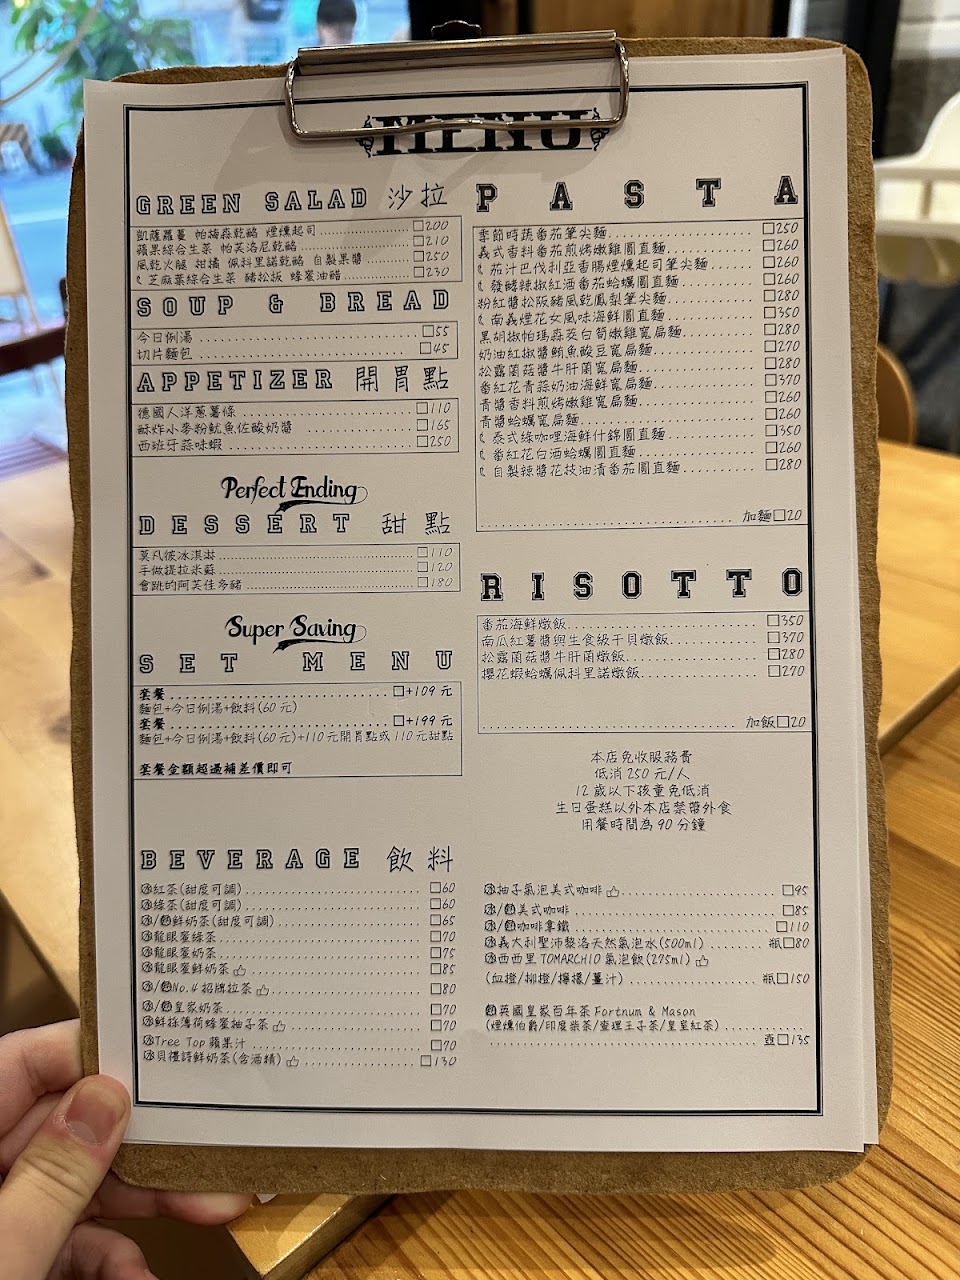 MENU
GREEN SALAD 沙拉
凱薩蘿蔓 帕梅森乾酪 煙燻起司........□200
蘋果綜合生菜 帕芙洛尼乾酪........□210
風乾火腿 柑橘 佩科里諾乾酪 自製果醬........□250
芝麻葉綜合生菜 豬松板 蜂蜜油醋........□230
SOUP & BREAD
今日例湯........□55
切片麵包........□45
APPETIZER 開胃點
德國人洋蔥薯條........□110
酥炸小麥粉魷魚佐酸奶醬........□165
西班牙蒜味蝦........□250
Perfect Ending
DESSERT 甜點
莫凡彼冰淇淋........□110
手做提拉米蘇........□120
會跳的阿芙佳多豬........□180
Super Saving
SET MENU
套餐........□+109元
麵包+今日例湯+飲料(60元)
套餐........□+199元
麵包+今日例湯+飲料(60元)+110元開胃點或110元甜點
套餐金額超過補差價即可
PASTA
季節時蔬番茄筆尖麵........□250
義式香料番茄煎烤嫩雞圓直麵........□260
茄汁巴伐利亞香腸煙燻起司筆尖麵........□260
發酵辣椒紅酒番茄蛤蠣圓直麵........□260
粉紅醬松阪豬風乾鳳梨筆尖麵........□280
南義煙花女風味海鮮圓直麵........□350
黑胡椒帕瑪森茭白筍嫩雞寬扁麵........□280
奶油紅椒醬鮪魚酸豆寬扁麵........□270
松露菌菇醬牛肝菌寬扁麵........□280
番紅花青蒜奶油海鮮寬扁麵........□370
青醬香料煎烤嫩雞寬扁麵........□260
青醬蛤蠣寬扁麵........□260
泰式綠咖哩海鮮什錦圓直麵........□350
番紅花白酒蛤蠣圓直麵........□260
自製辣醬花枝油漬番茄圓直麵........□280
........加麵□20
RISOTTO
番茄海鮮燉飯........□350
南瓜紅薯醬與生食級干貝燉飯........□370
松露菌菇醬牛肝菌燉飯........□280
櫻花蝦蛤蠣佩科里諾燉飯........□270
........加飯□20
本店免收服務費
低消250元/人
12歲以下孩童免低消
生日蛋糕以外本店禁帶外食
用餐時間為90分鐘
BEVERAGE 飲料
冰紅茶(甜度可調)........□60
冰綠茶(甜度可調)........□60
冰/熱鮮奶茶(甜度可調)........□65
冰龍眼蜜綠茶........□70
冰龍眼蜜奶茶........□75
冰龍眼蜜鮮奶茶........□85
冰/熱No.4招牌拉茶........□80
冰/熱皇家奶茶........□70
冰鮮採薄荷蜂蜜柚子茶........□70
冰Tree Top蘋果汁........□70
冰貝禮詩鮮奶茶(含酒精)........□130
冰柚子氣泡美式咖啡........□95
冰/熱美式咖啡........□85
冰/熱咖啡拿鐵........□110
冰義大利聖沛黎洛天然氣泡水(500ml)........瓶□80
冰西西里TOMARCHIO氣泡飲(275ml)
(血橙/柳橙/檸檬/薑汁)........瓶□150
熱英國皇家百年茶Fortnum & Mason
(煙燻伯爵/印度紫茶/查理王子茶/皇室紅茶)........
........壺□135